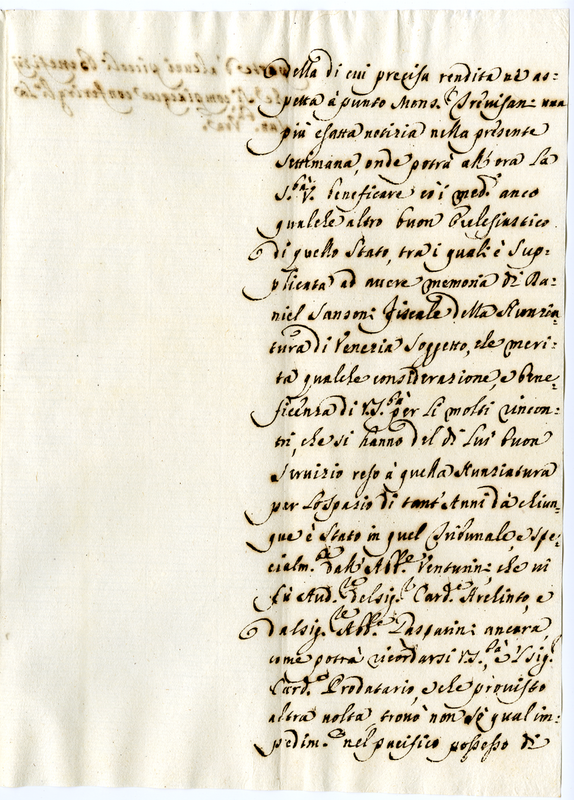 della di cui precisa rendita ne as-
petta à punto Mons. Trevisani una
più esatta notizia nella presente
Settimana, onde potrà all'ora La
S.tà V. beneficare co i med.i anco
qualche altro buon Eclesiastico
di quello Stato, tra i quali è sup-
plicata ad avere memoria di Da-
niel Sansoni Fiscale della Nunzia-
tura di Venezia Soggetto, che meri-
ta qualche considerazione, e bene-
ficenza di V.S.tà per li molti rincon-
tri, che si hanno del di Lui buon
Servizio reso à quella Nunziatura
per Lo spazio di tant'Anni da chiun-
que è Stato in quel Tribunale, e spe-
cialm.te dall'Abb.e Venturini che vi
fù Aud.re del sig.r Card.e Arelinto, e
dal sig.r Abb.e Gasparini ancora,
come potrà ricordarsi V.S.tà, e 'l sig.r
Card.e Prodatario, e che provisto
altra volta, trovò non sò qual im-
pedim.to nel pacifico possesso di